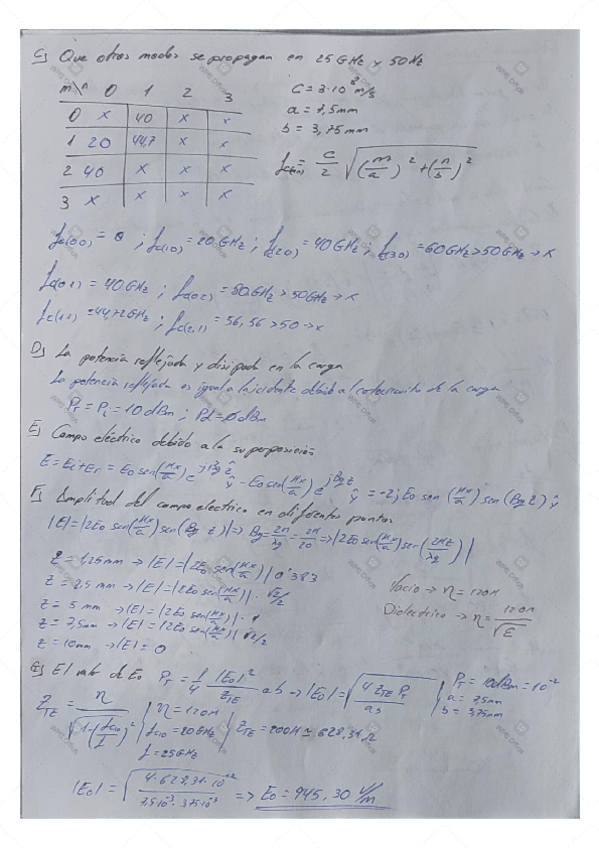 C) Que otros modos se propagan en 25 GHz y 50 Hz
m\n 0 1 2 3
0 x 40 x x
1 20 44,7 x x
2 40 x x x
3 x x x x
C = 3·10⁸ m/s
a = 7,5mm
b = 3,75mm
fc(mn) = C/2 √((m/a)² + (n/b)²)
fc(00) = 0 ; fc(10) = 20GHz ; fc(20) = 40GHz ; fc(30) = 60GHz > 50GHz → x
fc(01) = 40GHz ; fc(02) = 80GHz > 50GHz → x
fc(11) = 44,72GHz ; fc(2,1) = 56,56 > 50 → x
D) La potencia reflejada y disipada en la carga
La potencia reflejada es igual a la incidente debido al cortocircuito de la carga
Pr = Pi = 10 dBm ; Pd = 0 dBm
E) Campo eléctrico debido a la superposición
E = Ei + Er = E0 sen(πx/a) e^-jβg z ŷ - E0 sen(πx/a) e^jβg z ŷ = -2j E0 sen(πx/a) sen(βg z) ŷ
F) Amplitud del campo electrico en diferentes puntos
|E| = |2E0 sen(πx/a) sen(βg z)| ⇒ βg = 2π/λg = 2π/20 ⇒ |2E0 sen(πx/a) sen(2πz/λg)|
z = 1,25mm → |E| = |2E0 sen(πx/a)| 0'383
z = 2,5 mm → |E| = |2E0 sen(πx/a)| · √2/2
z = 5 mm → |E| = |2E0 sen(πx/a)| · 1
z = 7,5mm → |E| = |2E0 sen(πx/a)| √2/2
z = 10mm → |E| = 0
Vacio → η = 120π
Dielectrico → η = 120π/√ε
G) El valor de E0 PT = 1/4 |E0|²/ZTE ab → |E0| = √(4 ZTE PT/ab)
PT = 10dBm = 10⁻²
a = 7,5mm
b = 3,75mm
ZTE = η/√(1-(fc10/f)²)
η = 120π
fc10 = 20GHz
f = 25GHz
ZTE = 200π ≈ 628,31 Ω
|E0| = √(4·628,31·10⁻²/7,5·10⁻³·3,75·10⁻³) ⇒ E0 = 945,30 V/m